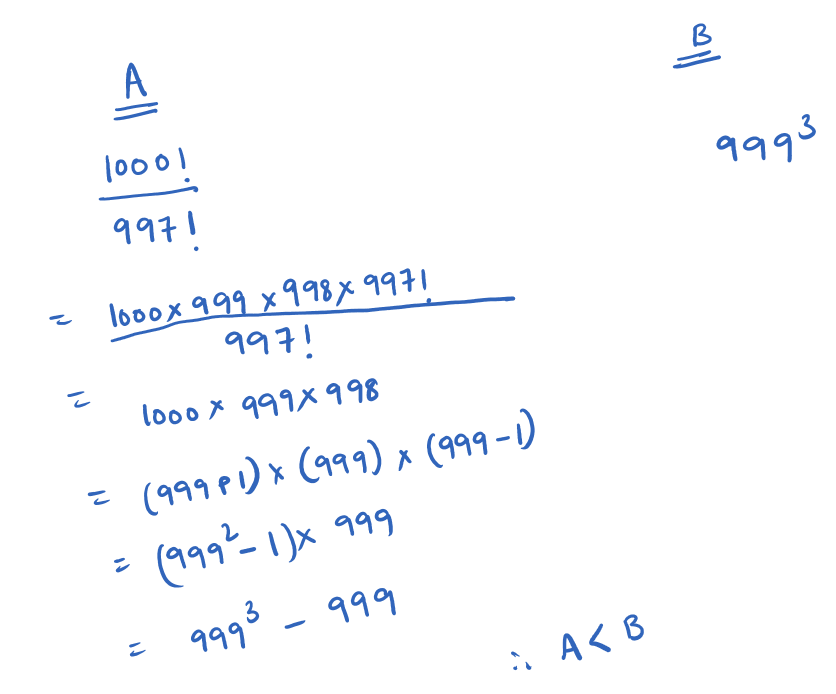 A B
1000!
997!
999³
= 1000 × 999 × 998 × 997!
997!
= 1000 × 999 × 998
= (999 + 1) × (999) × (999 - 1)
= (999² - 1) × 999
= 999³ - 999
∴ A < B